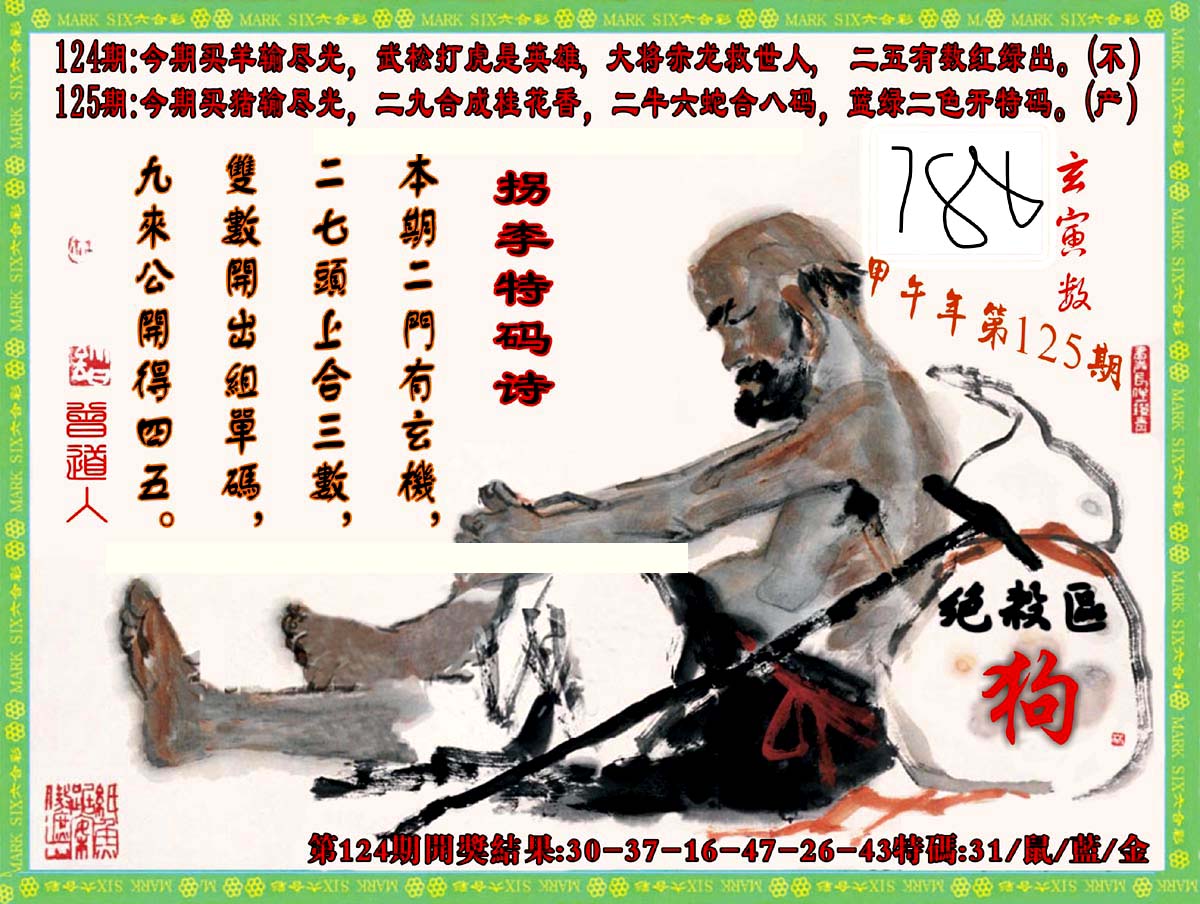 MARK SIX六合彩
124期:今期买羊输尽光，武松打虎是英雄，大将赤龙救世人，二五有数红绿出。(不)
125期:今期买猪输尽光，二九合成桂花香，二牛六蛇合八码，蓝绿二色开特码。(产)
玄寅数
甲午年第125期
拐李特码诗
本期二門有玄機，
二七頭上合三數，
雙數開出組單碼，
九來公開得四五。
曾道人
绝殺區
狗
第124期開獎結果:30-37-16-47-26-43特碼:31/鼠/藍/金